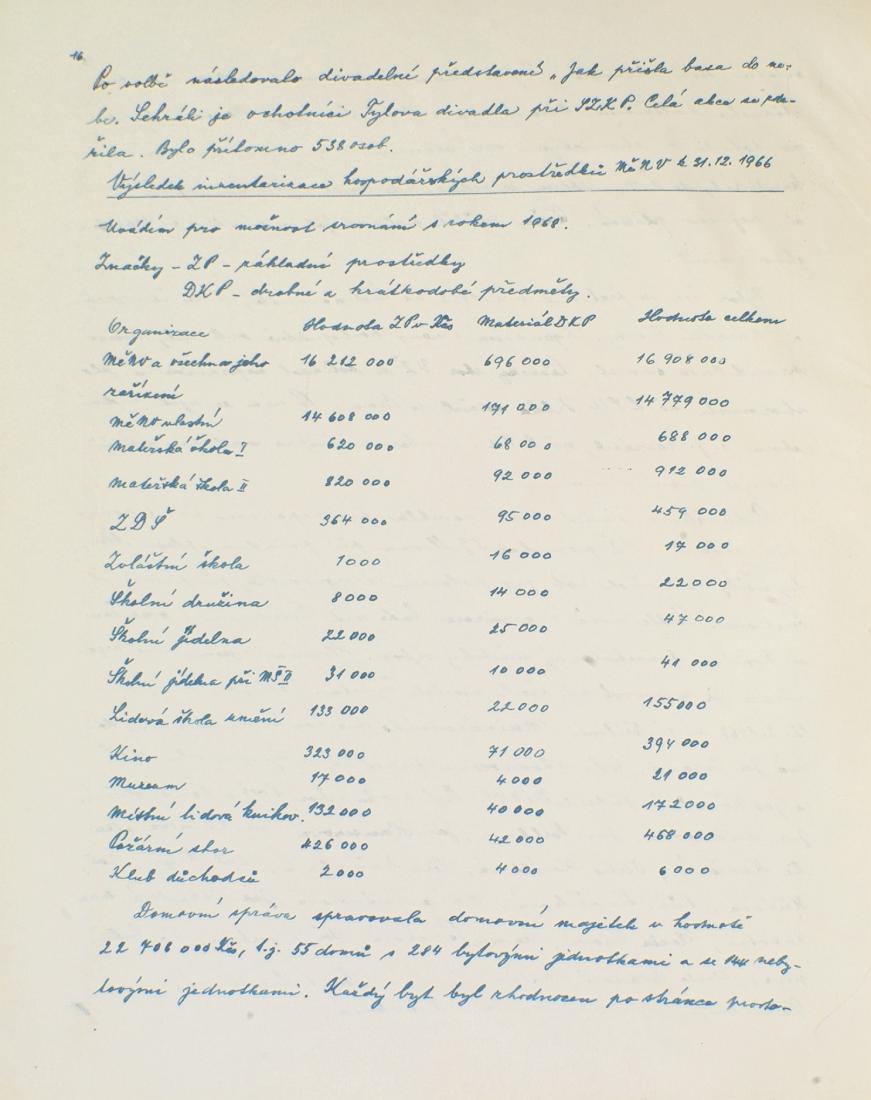 16.
Po volbě následovalo divadelní představení „Jak přišla basa do ne-
be. Sehráli je ochotníci Tylova divadla při SZKP. Celá akce se zda-
řila. Bylo přítomno 538 osob.
Výsledek inventarizace hospodářských prostředků MěNV k 31.12.1966
Uvádím pro možnost srovnání s rokem 1968.
Značky - ZP - základní prostředky
DKP - drobné a krátkodobé předměty.
Organizace Hodnota ZP v Kčs Materiál DKP Hodnota celkem
MěNV a všechna jeho 16 212 000 696 000 16 908 000
zařízení
MěNV vlastní 14 608 000 171 000 14 779 000
Mateřská škola I 620 000 68 000 688 000
Mateřská škola II 820 000 92 000 912 000
ZDŠ 364 000 95 000 459 000
Zvláštní škola 1000 16 000 17 000
Školní družina 8000 14 000 22 000
Školní jídelna 22 000 25 000 47 000
Školní jídelna při MŠ II 31 000 10 000 41 000
Lidová škola umění 133 000 22 000 155 000
Kino 323 000 71 000 394 000
Muzeum 17 000 4 000 21 000
Místní lidová knihov. 132 000 40 000 172 000
Požární sbor 426 000 42 000 468 000
Klub důchodců 2 000 4 000 6 000
Domovní správa spravovala domovní majetek v hodnotě
22 706 000 Kčs, t.j. 55 domů s 284 bytovými jednotkami a se 144 neby-
tovými jednotkami. Každý byt byl zhodnocen po stránce prosto-